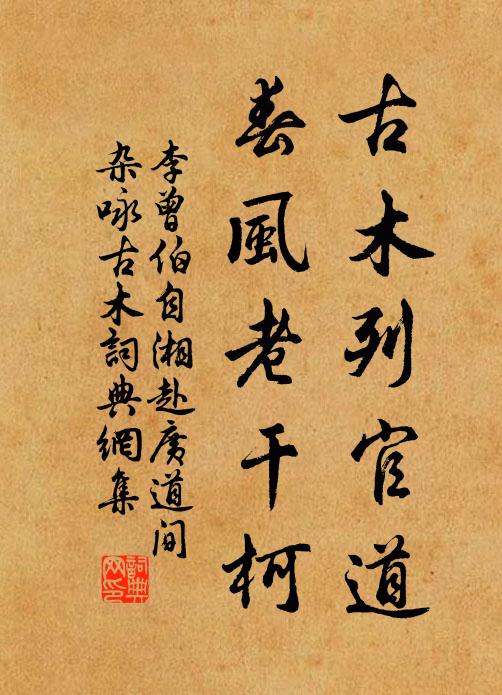 古木列官道
春風老干柯
李曾伯自湘赴廣道间
杂咏古木詞典網集
詞典网印